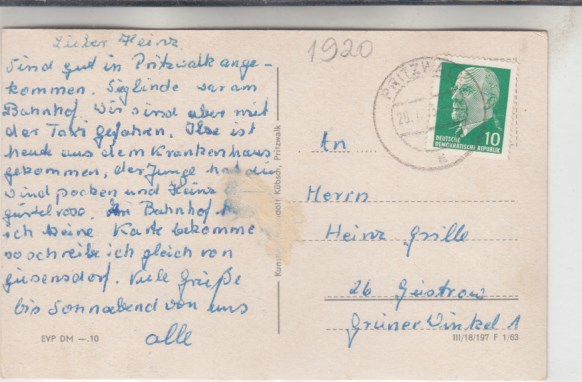 Lieber Heinz
Sind gut in Pritzwalk ange-
kommen. Siglinde war am
Bahnhof. Wir sind aber mit
der Taxi gefahren. Ilse ist
heute aus dem Krankenhaus
gekommen, der Junge hat die
Windpocken und Heinz
gürtelrose. Am Bahnhof
ich keine Karte bekomme
so schreibe ich gleich von
Giesensdorf. Viele Grüße
bis Sonnabend von uns
alle
EVP DM —.10
Kübsch, Pritzwalk
1920
PRITZW
DEUTSCHE
DEMOKRATISCHE REPUBLIK
10
An
Herrn
Heinz Grille
26 Güstrow
Grüner Winkel 1
III/18/197 F 1/63